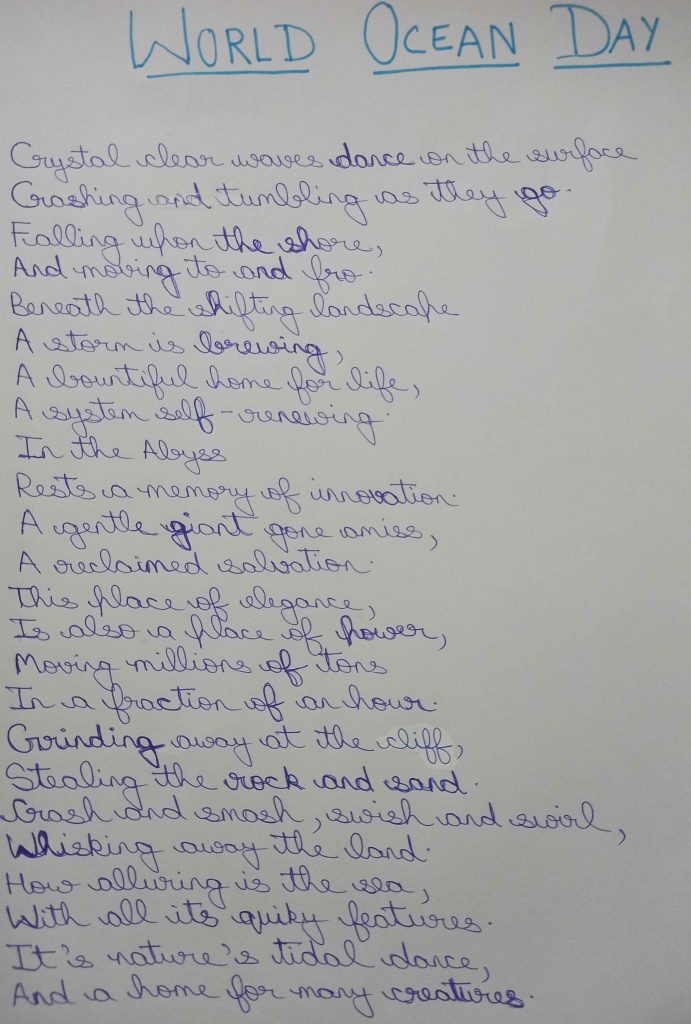 WORLD OCEAN DAY
Crystal clear waves dance on the surface
Crashing and tumbling as they go.
Falling upon the shore,
And moving to and fro.
Beneath the shifting landscape
A storm is brewing,
A bountiful home for life,
A system self-renewing.
In the Abyss
Rests a memory of innovation.
A gentle giant gone amiss,
A reclaimed salvation.
This place of elegance,
Is also a place of power,
Moving millions of tons
In a fraction of an hour.
Grinding away at the cliff,
Stealing the rock and sand.
Crash and smash, swish and swirl,
Whisking away the land.
How alluring is the sea,
With all its quiky features.
It's nature's tidal dance,
And a home for many creatures.